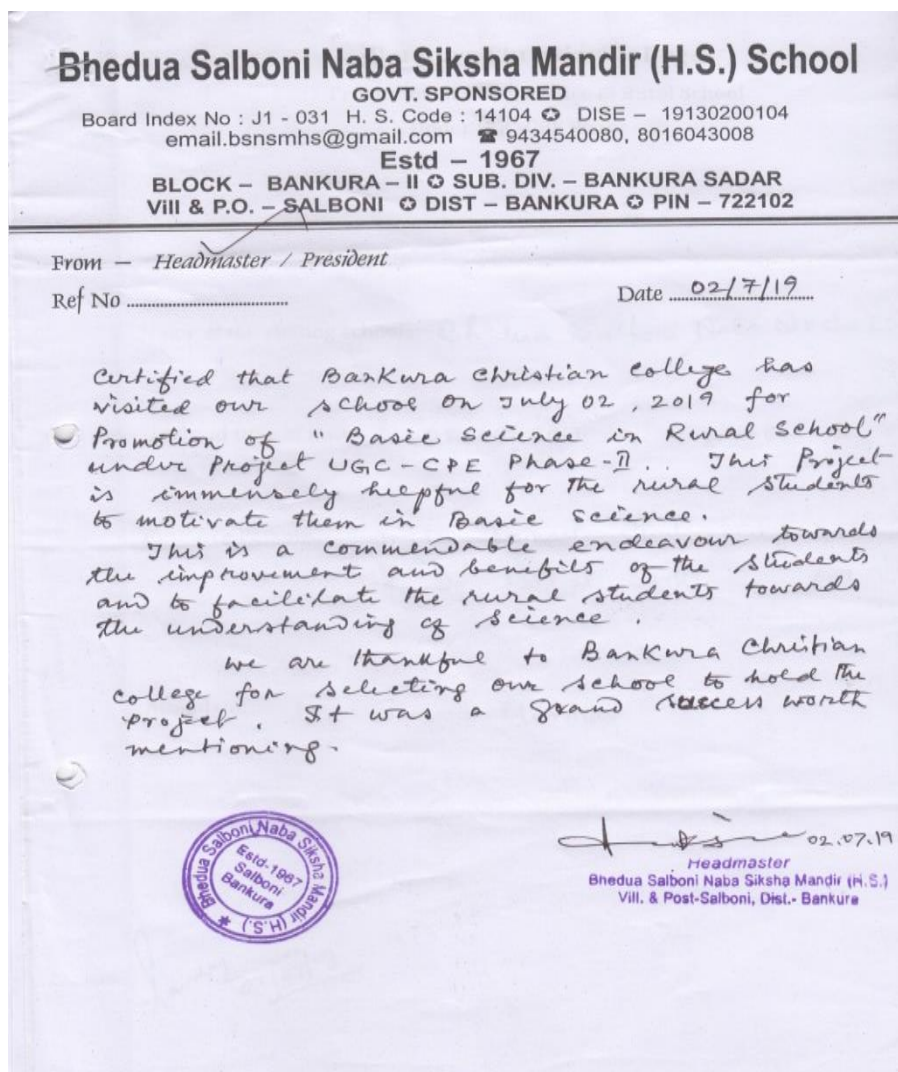 Bhedua Salboni Naba Siksha Mandir (H.S.) School
GOVT. SPONSORED
Board Index No : J1 - 031 H. S. Code : 14104 ✪ DISE – 19130200104
email.bsnsmhs@gmail.com ☎ 9434540080, 8016043008
Estd – 1967
BLOCK – BANKURA – II ✪ SUB. DIV. – BANKURA SADAR
Vill & P.O. – SALBONI ✪ DIST – BANKURA ✪ PIN – 722102
From – Headmaster / President
Ref No ....................................
Date 02/7/19
Certified that Bankura Christian College has
visited our school on July 02, 2019 for
Promotion of "Basic Science in Rural School"
under Project UGC-CPE Phase-II.. This Project
is immensely helpful for the rural students
to motivate them in Basic Science.
This is a commendable endeavour towards
the improvement and benefits of the students
and to facilitate the rural students towards
the understanding of Science.
we are thankful to Bankura Christian
College for selecting our school to hold the
Project. It was a grand success worth
mentioning.
02.07.19
Headmaster
Bhedua Salboni Naba Siksha Mandir (H.S.)
Vill. & Post-Salboni, Dist.- Bankura
Bhedua Salboni Naba Siksha Mandir (H.S.)
Estd-1967
Salboni
Bankura